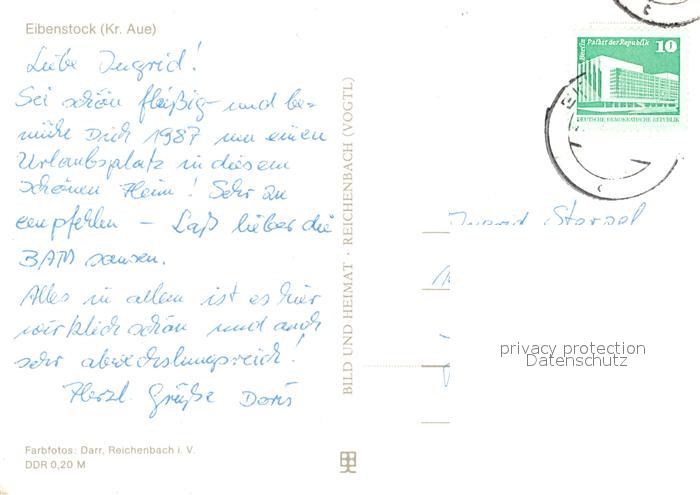 Eibenstock (Kr. Aue)
Liebe Ingrid!
Sei schön fleißig und be-
mühe Dich 1987 um einen
Urlaubsplatz in diesem
schönen Heim! Sehr zu
empfehlen – Laß lieber die
BAM sausen.
Alles in allem ist es hier
wirklich schön und auch
sehr abwechslungsreich!
Herzl. Grüße Doris
Farbfotos: Darr, Reichenbach i. V.
DDR 0,20 M
BILD UND HEIMAT · REICHENBACH (VOGTL)
Berlin Palast der Republik 10
DEUTSCHE DEMOKRATISCHE REPUBLIK
Ingrid
privacy protection
Datenschutz